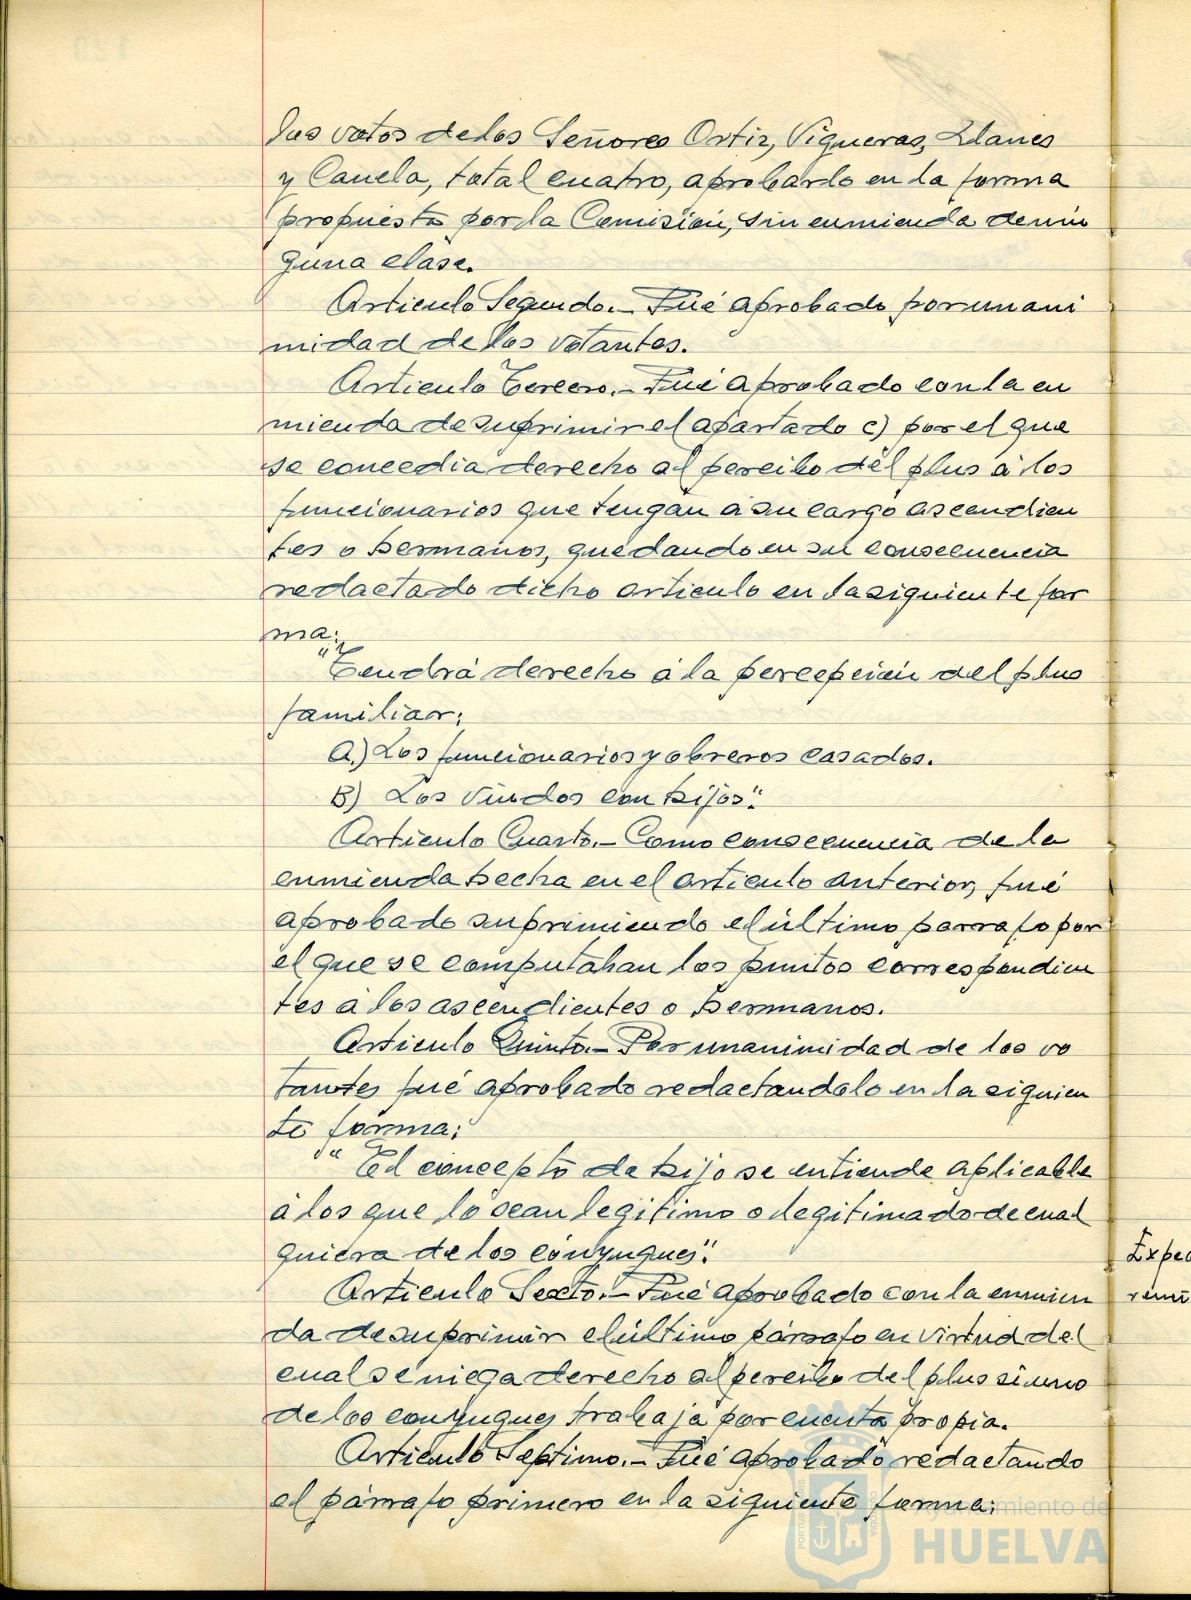 los votos de los Señores Ortiz, Vigueras, Llanes
y Canela, total cuatro, aprobarlo en la forma
propuesta por la Comisión, sin enmienda de nin
guna clase.
Articulo Segundo.- Fué aprobado por unani
midad de los votantes.
Articulo Tercero.- Fué aprobado con la en
mienda de suprimir el apartado c) por el que
se concedia derecho al percibo del plus á los
funcionarios que tengan á su cargo ascendien
tes o hermanos, quedando en su consecuencia
redactado dicho articulo en la siguiente for
ma:
"Tendrá derecho á la percepción del plus
familiar:
A.) Los funcionarios y obreros casados.
B) Los viudos con hijos".
Articulo Cuarto.- Como consecuencia de la
enmienda hecha en el articulo anterior, fué
aprobado suprimiendo el último parrafo por
el que se computaban los puntos correspondien
tes á los ascendientes o hermanos.
Articulo Quinto.- Por unanimidad de los vo
tantes fué aprobado redactandolo en la siguien
te forma:
"El concepto de hijo se entiende aplicable
á los que lo sean legitimo o legitimado de cual
quiera de los cónyugues".
Articulo Sexto.- Fué aprobado con la enmien
da de suprimir el último párrafo en virtud del
cual se niega derecho al percibo del plus si uno
de los conyugues trabaja por cuenta propia.
Articulo Septimo.- Fué aprobado redactando
el párrafo primero en la siguiente forma:
Ayuntamiento de
HUELVA